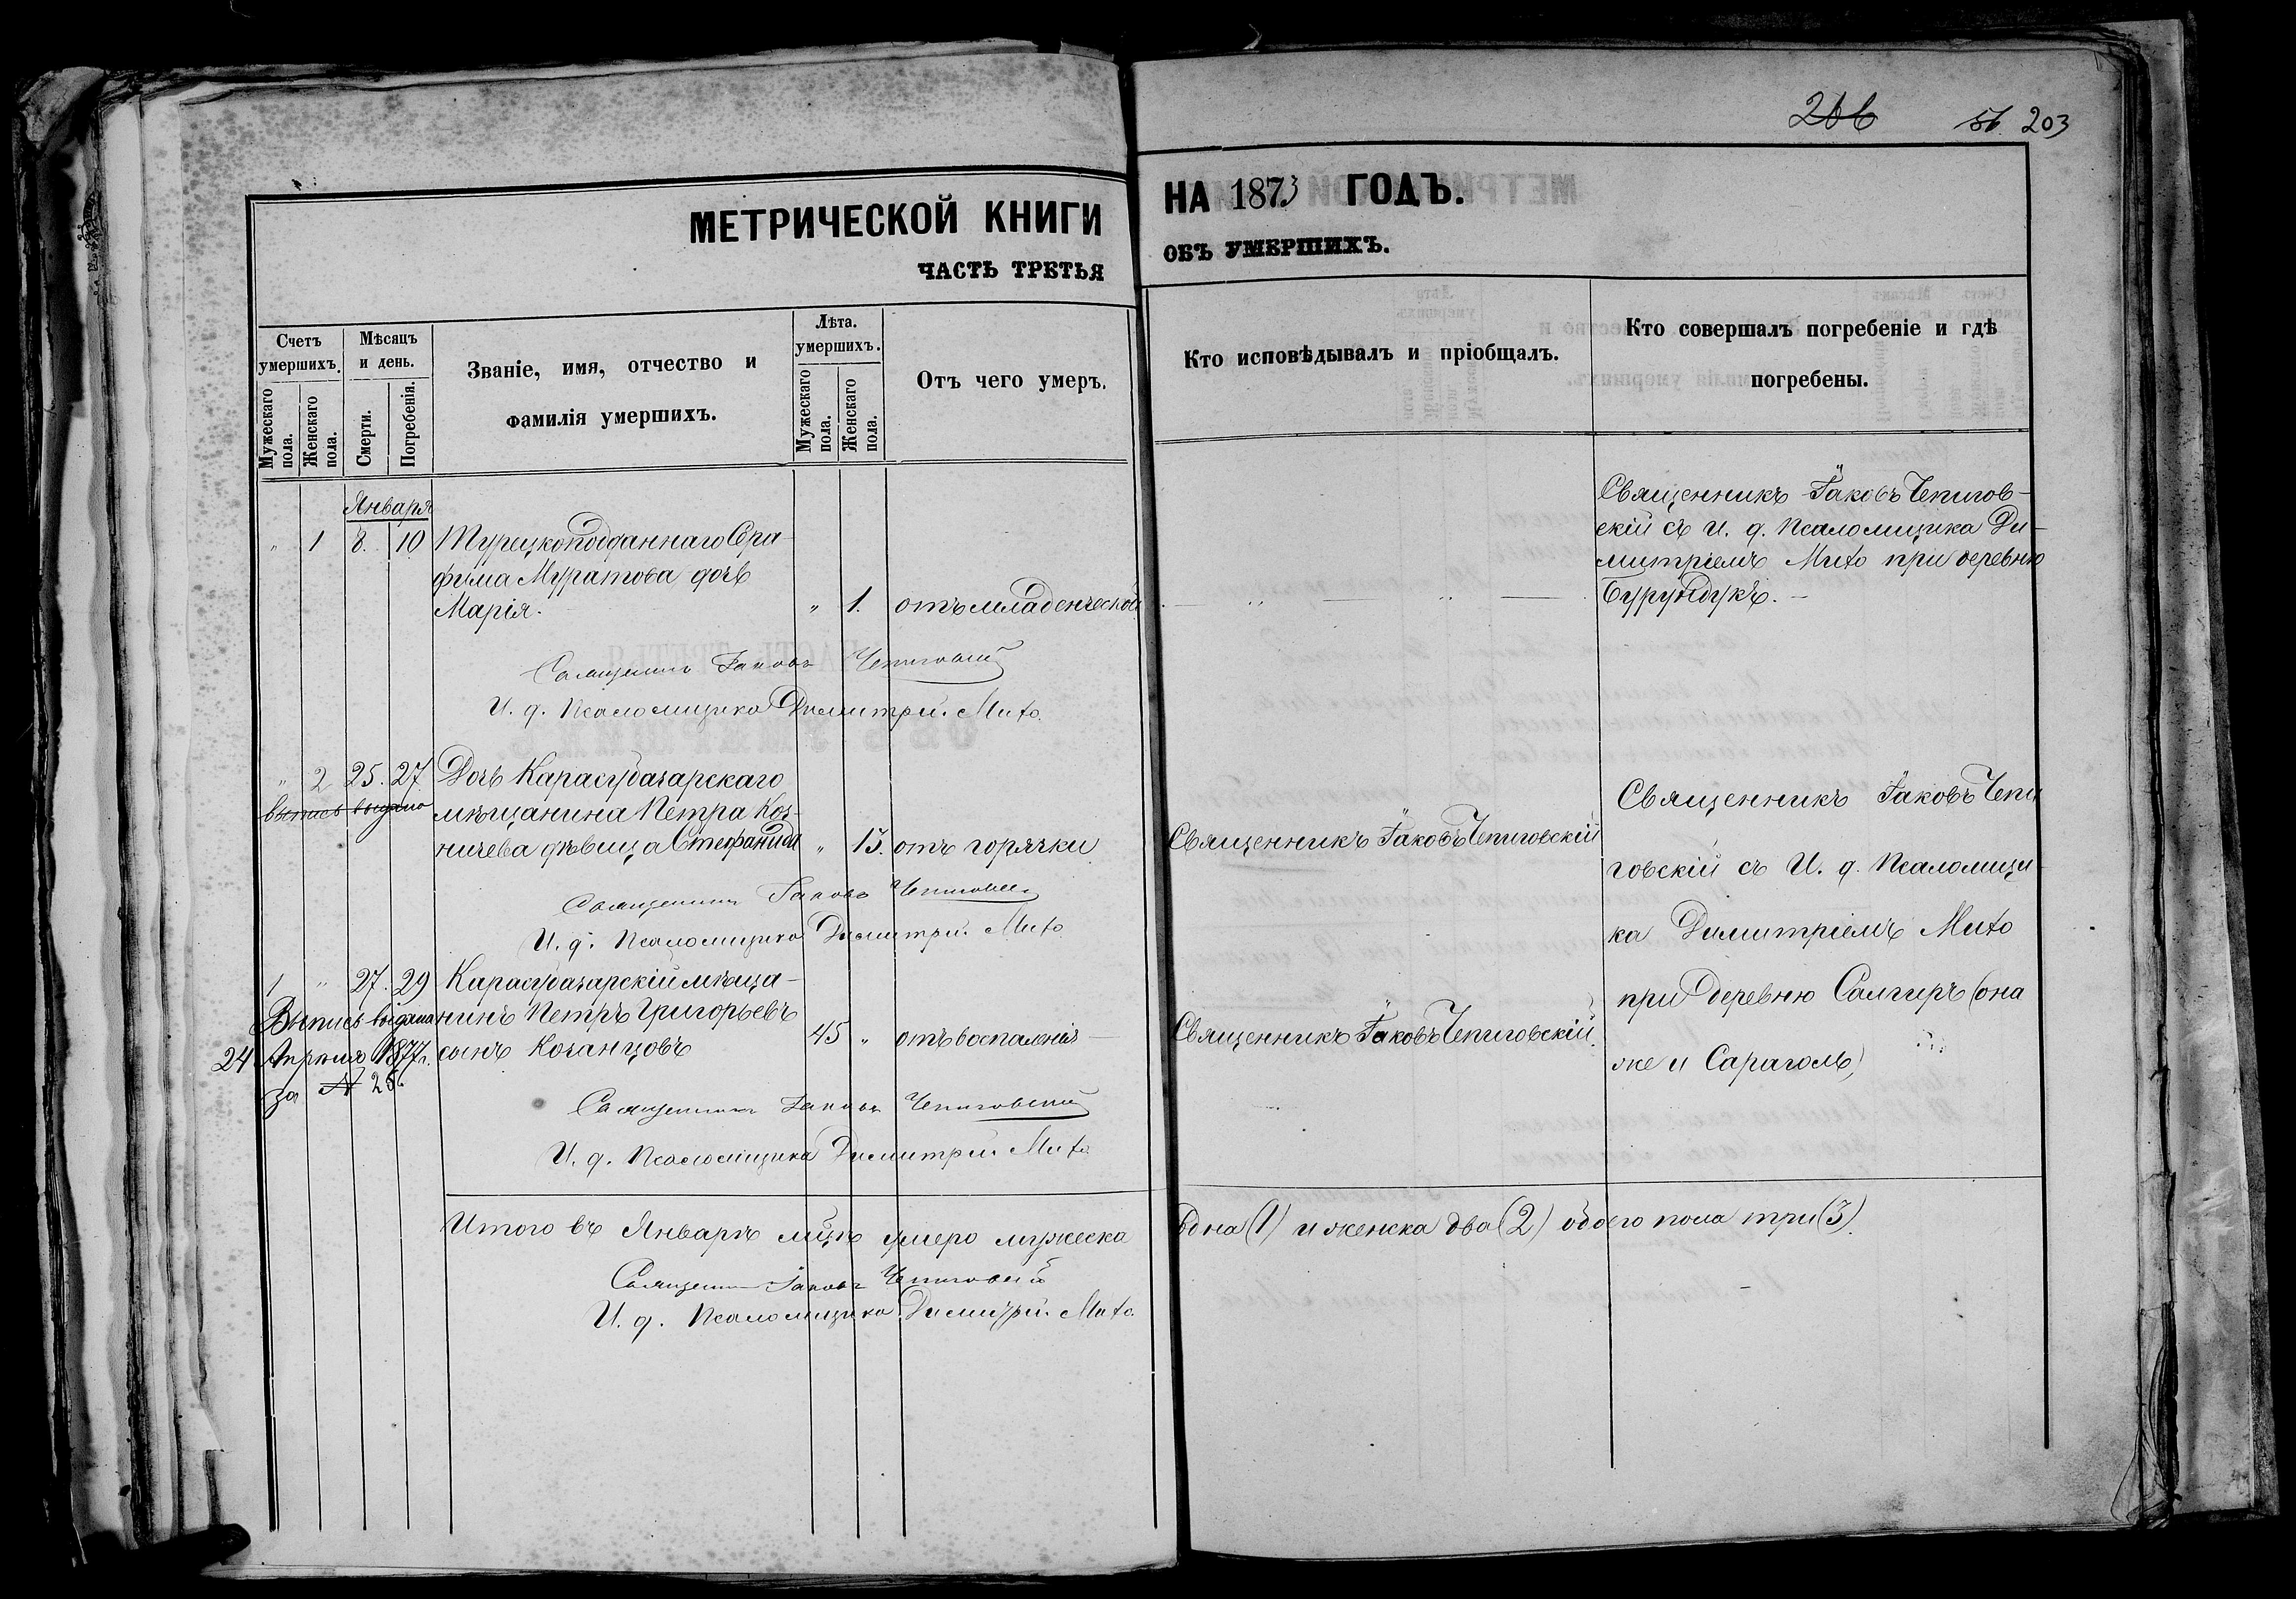 206 56. 203
МЕТРИЧЕСКОЙ КНИГИ НА 1873 ГОДЪ.
ЧАСТЬ ТРЕТЬЯ ОБЪ УМЕРШИХЪ.
Счетъ умершихъ.
Мужескаго пола.
Женскаго пола.
Мѣсяцъ и день.
Смерти.
Погребенія.
Званіе, имя, отчество и
фамилія умершихъ.
Лѣта. умершихъ.
Мужескаго пола.
Женскаго пола.
Отъ чего умеръ.
Кто исповѣдывалъ и пріобщалъ.
Кто совершалъ погребеніе и гдѣ
погребены.
Января
" 1 8. 10 Турецкоподданнаго Сра-
фима Муратова дочь
Марія. " 1. отъ младенческой
Священникъ Іаковъ Чепигов-
скій съ И. д. Псаломщика Ди-
митріемъ Мито при деревню
Бурундукъ.
Священникъ Іаковъ Чепиговскій
И. д. Псаломщика Димитрій Мито
" 2 25. 27. Дочь Карасубазарскаго
выпись выдана мѣщанина Петра Коз-
ничева дѣвица Стефанида " 13. отъ горячки
Священникъ Іаковъ Чепиговскій
Священникъ Іаковъ Чепи
говскій съ И. д. Псаломщи-
ка Димитріемъ Мито
при деревню Салгиръ (она
же и Сараголь)
Священникъ Іаковъ Чепиговскій
И. д. Псаломщика Димитрій Мито
1 " 27. 29 Карасубазарскій мѣща-
Выпись выдана нинъ Петръ Григорьевъ
24 Апрѣля 1877 г. сынъ Козанцовъ 45 " отъ воспаленія
за № 26.
Священникъ Іаковъ Чепиговскій
Священникъ Іаковъ Чепиговскій
И. д. Псаломщика Димитрій Мито
Итого въ Январѣ мцѣ умеро мужеска одна (1) и женска два (2) обоего пола три (3).
Священникъ Іаковъ Чепиговскій
И. д. Псаломщика Димитрій Мито